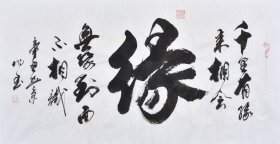 千里有缘
来相会
缘
無缘對面
不相識